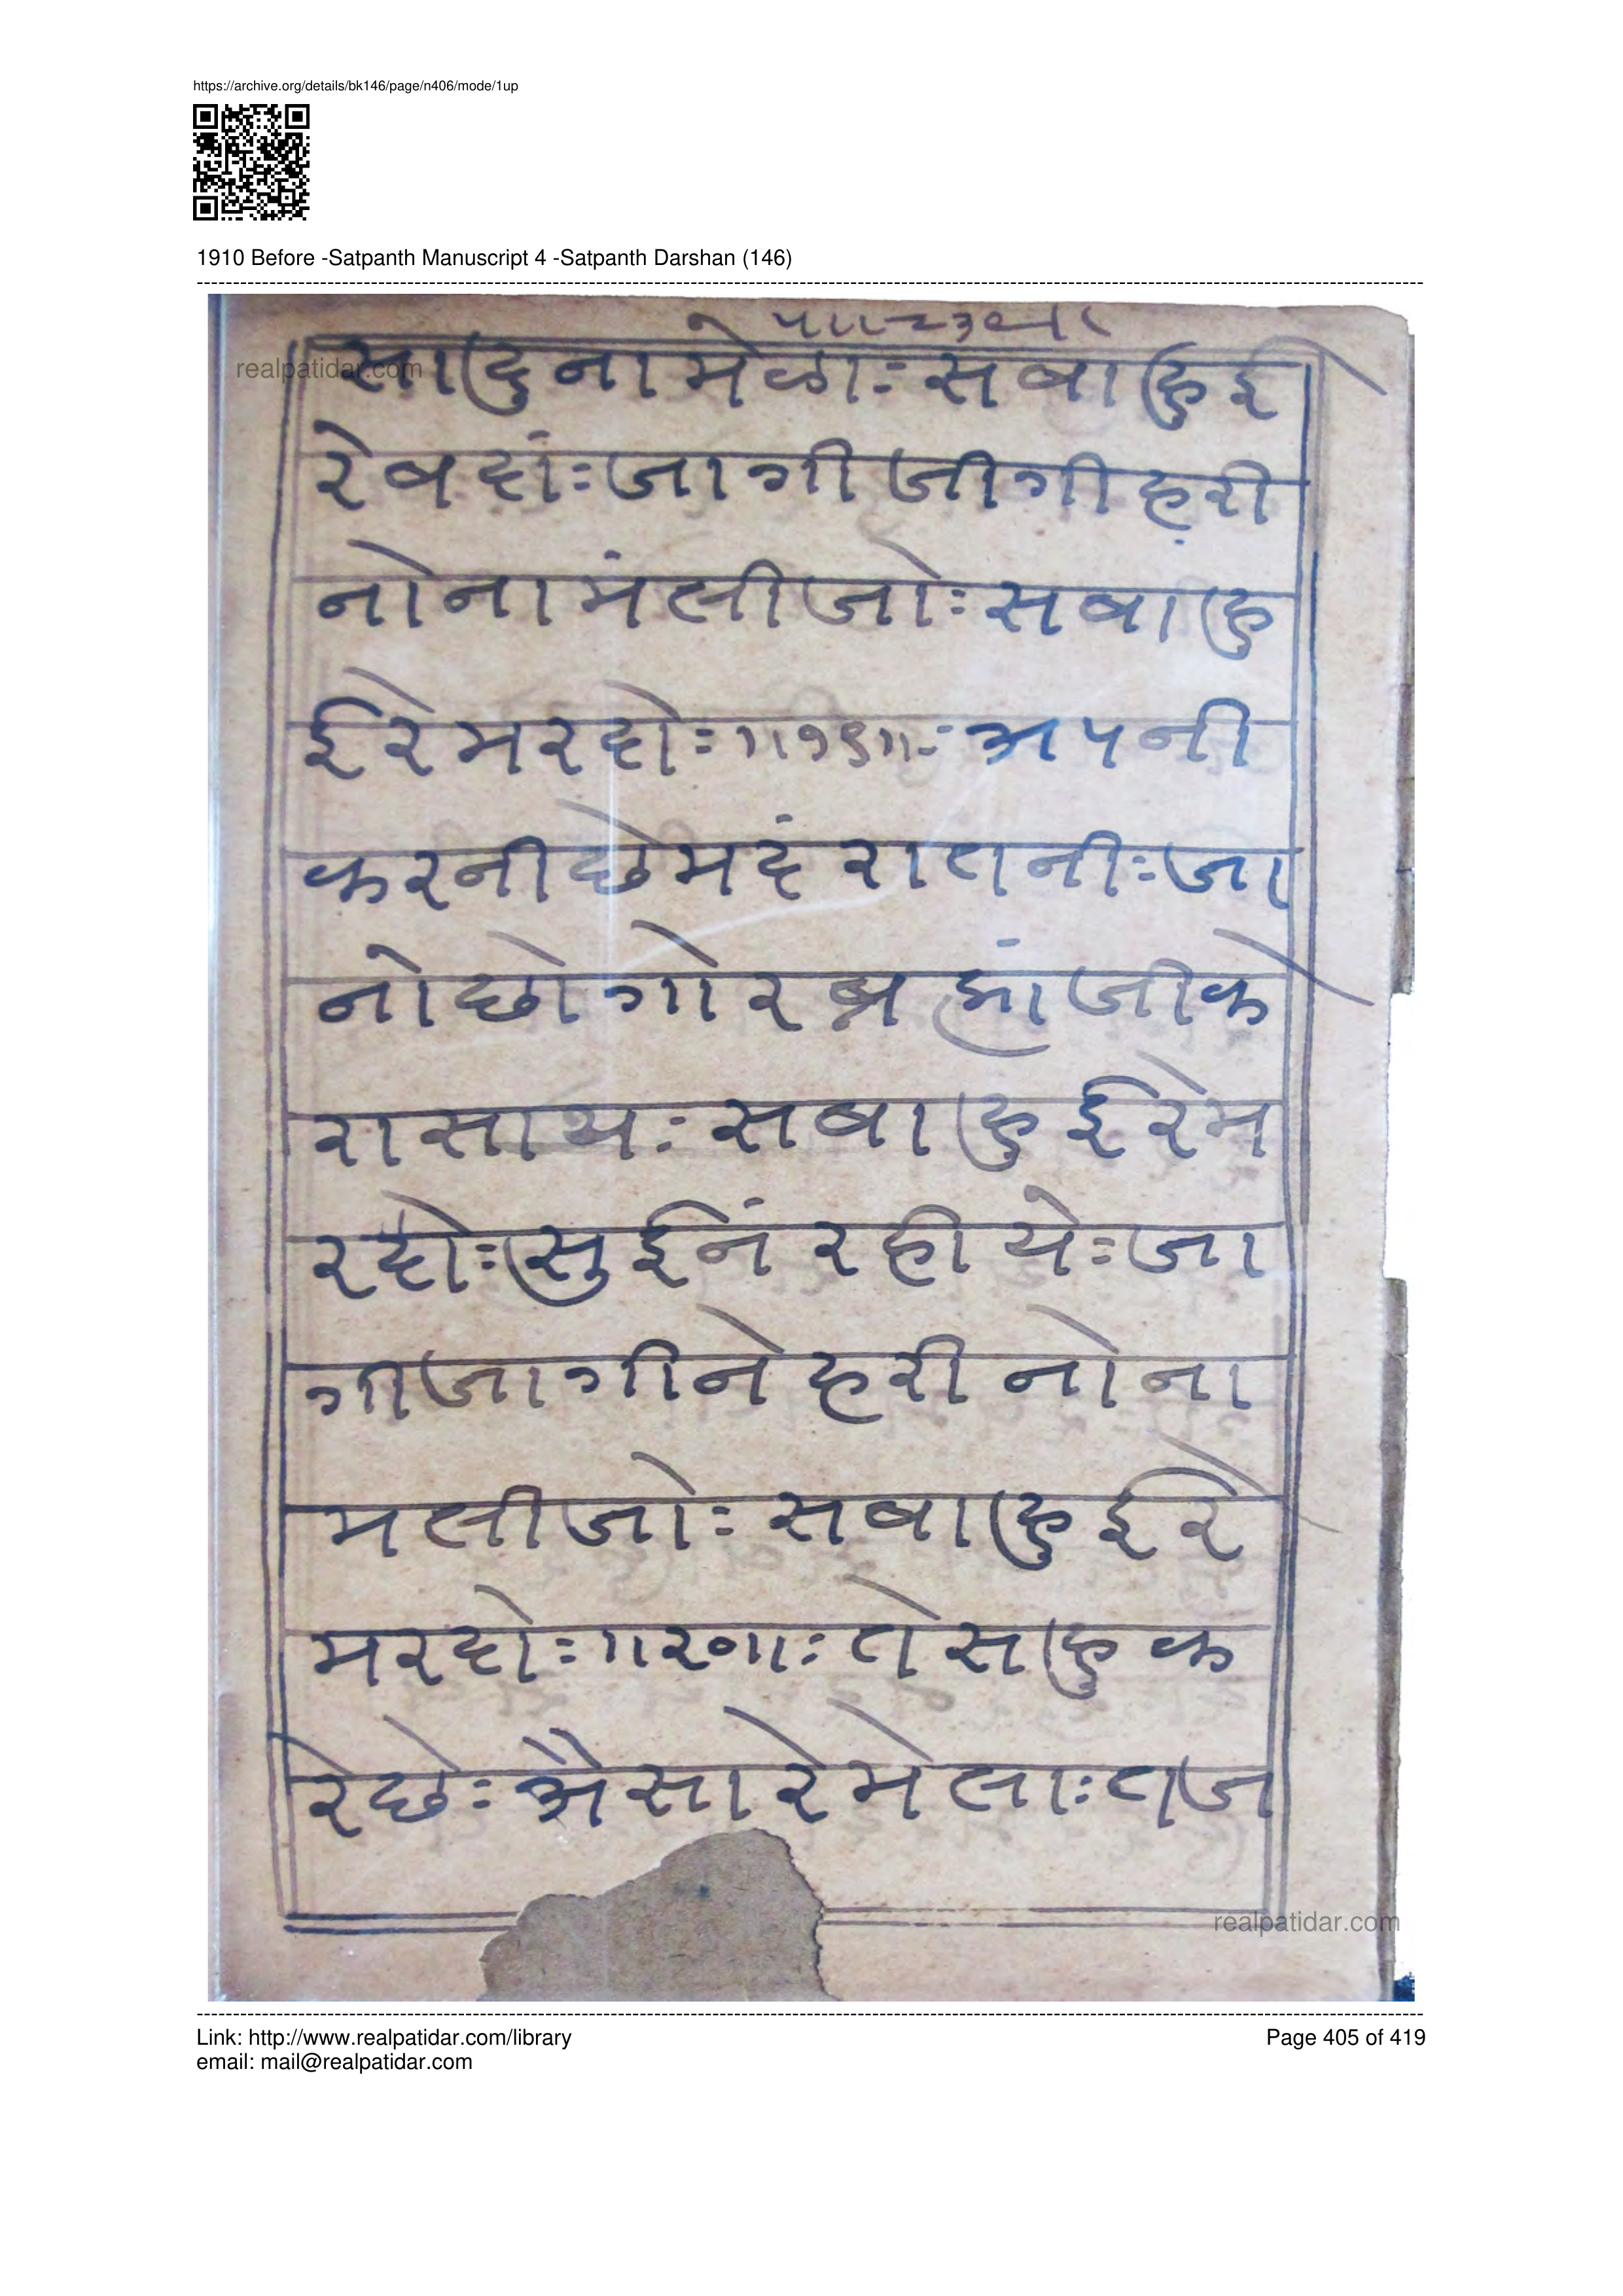 https://archive.org/details/bk146/page/n406/mode/1up
1910 Before -Satpanth Manuscript 4 -Satpanth Darshan (146)
realpatidar.com
सादुनामेळाः सवाहुई
रेवदोः जागीजीगीहरी
नोनामंलीजोः सवाहु
ईरेमरदोः ॥१९॥ः अपनी
करनीछेमदं रातनीः जा
नोछोगोरब्रह्मांजीके
रासाथः सवाहुईरेम
रदोः सुईनं रहीयेः जा
गीजागीने हरी नोना
मलीजोः सवाहुईरे
मरदोः ॥२०॥ः तेसहुक
रेछेः अैसारेमेलाः तज
realpatidar.com
Link: http://www.realpatidar.com/library
Page 405 of 419
email: mail@realpatidar.com